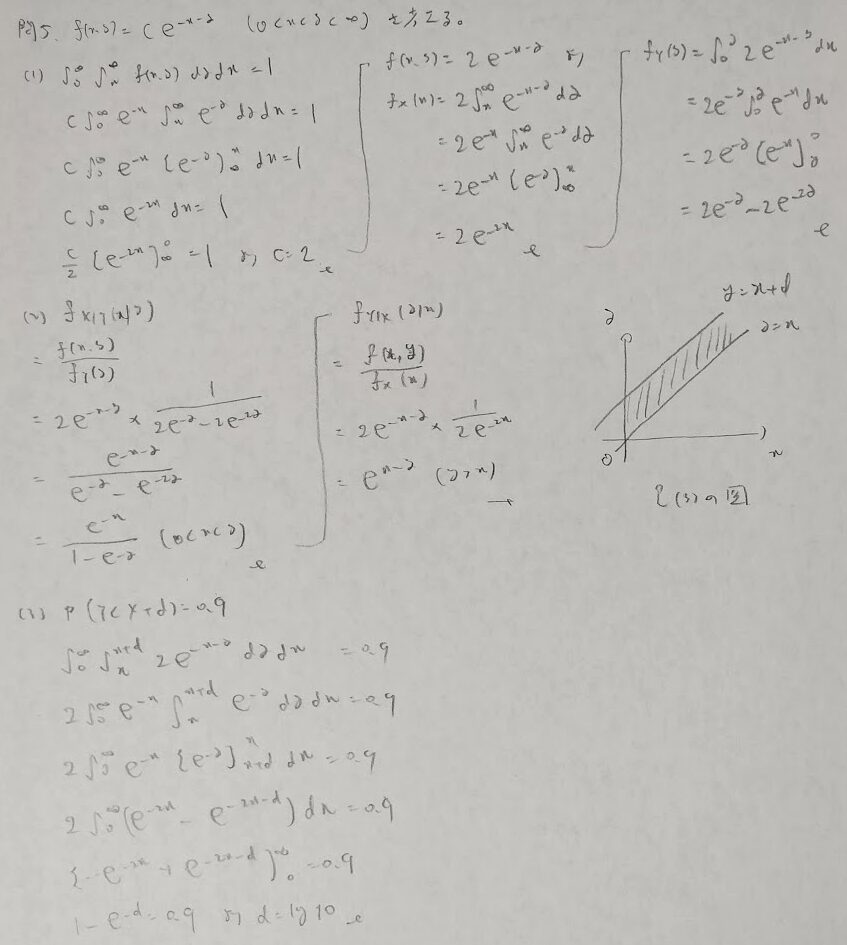 問5. f(x,y) = c e^{-x-y} (0<x<y<∞) を考える。
(1) ∫_0^∞ ∫_x^∞ f(x,y) dy dx = 1
c ∫_0^∞ e^{-x} ∫_x^∞ e^{-y} dy dx = 1
c ∫_0^∞ e^{-x} [e^{-y}]_∞^x dx = 1
c ∫_0^∞ e^{-2x} dx = 1
c/2 [e^{-2x}]_∞^0 = 1 より, c = 2
f(x,y) = 2 e^{-x-y} より,
f_X(x) = 2 ∫_x^∞ e^{-x-y} dy
= 2e^{-x} ∫_x^∞ e^{-y} dy
= 2e^{-x} [e^{-y}]_∞^x
= 2 e^{-2x}
f_Y(y) = ∫_0^y 2 e^{-x-y} dx
= 2e^{-y} ∫_0^y e^{-x} dx
= 2e^{-y} [e^{-x}]_y^0
= 2e^{-y} - 2e^{-2y}
(2) f_{X|Y}(x|y)
= f(x,y) / f_Y(y)
= 2e^{-x-y} × 1 / (2e^{-y} - 2e^{-2y})
= e^{-x-y} / (e^{-y} - e^{-2y})
= e^{-x} / (1 - e^{-y}) (0<x<y)
f_{Y|X}(y|x)
= f(x,y) / f_X(x)
= 2e^{-x-y} × 1 / 2e^{-2x}
= e^{x-y} (y>x)
y = x+d
y = x
y
0
x
(3)の図
(3) P(Y<X+d) = 0.9
∫_0^∞ ∫_x^{x+d} 2e^{-x-y} dy dx = 0.9
2 ∫_0^∞ e^{-x} ∫_x^{x+d} e^{-y} dy dx = 0.9
2 ∫_0^∞ e^{-x} [e^{-y}]_{x+d}^x dx = 0.9
2 ∫_0^∞ (e^{-2x} - e^{-2x-d}) dx = 0.9
[-e^{-2x} + e^{-2x-d}]_0^∞ = 0.9
1 - e^{-d} = 0.9 より d = log 10